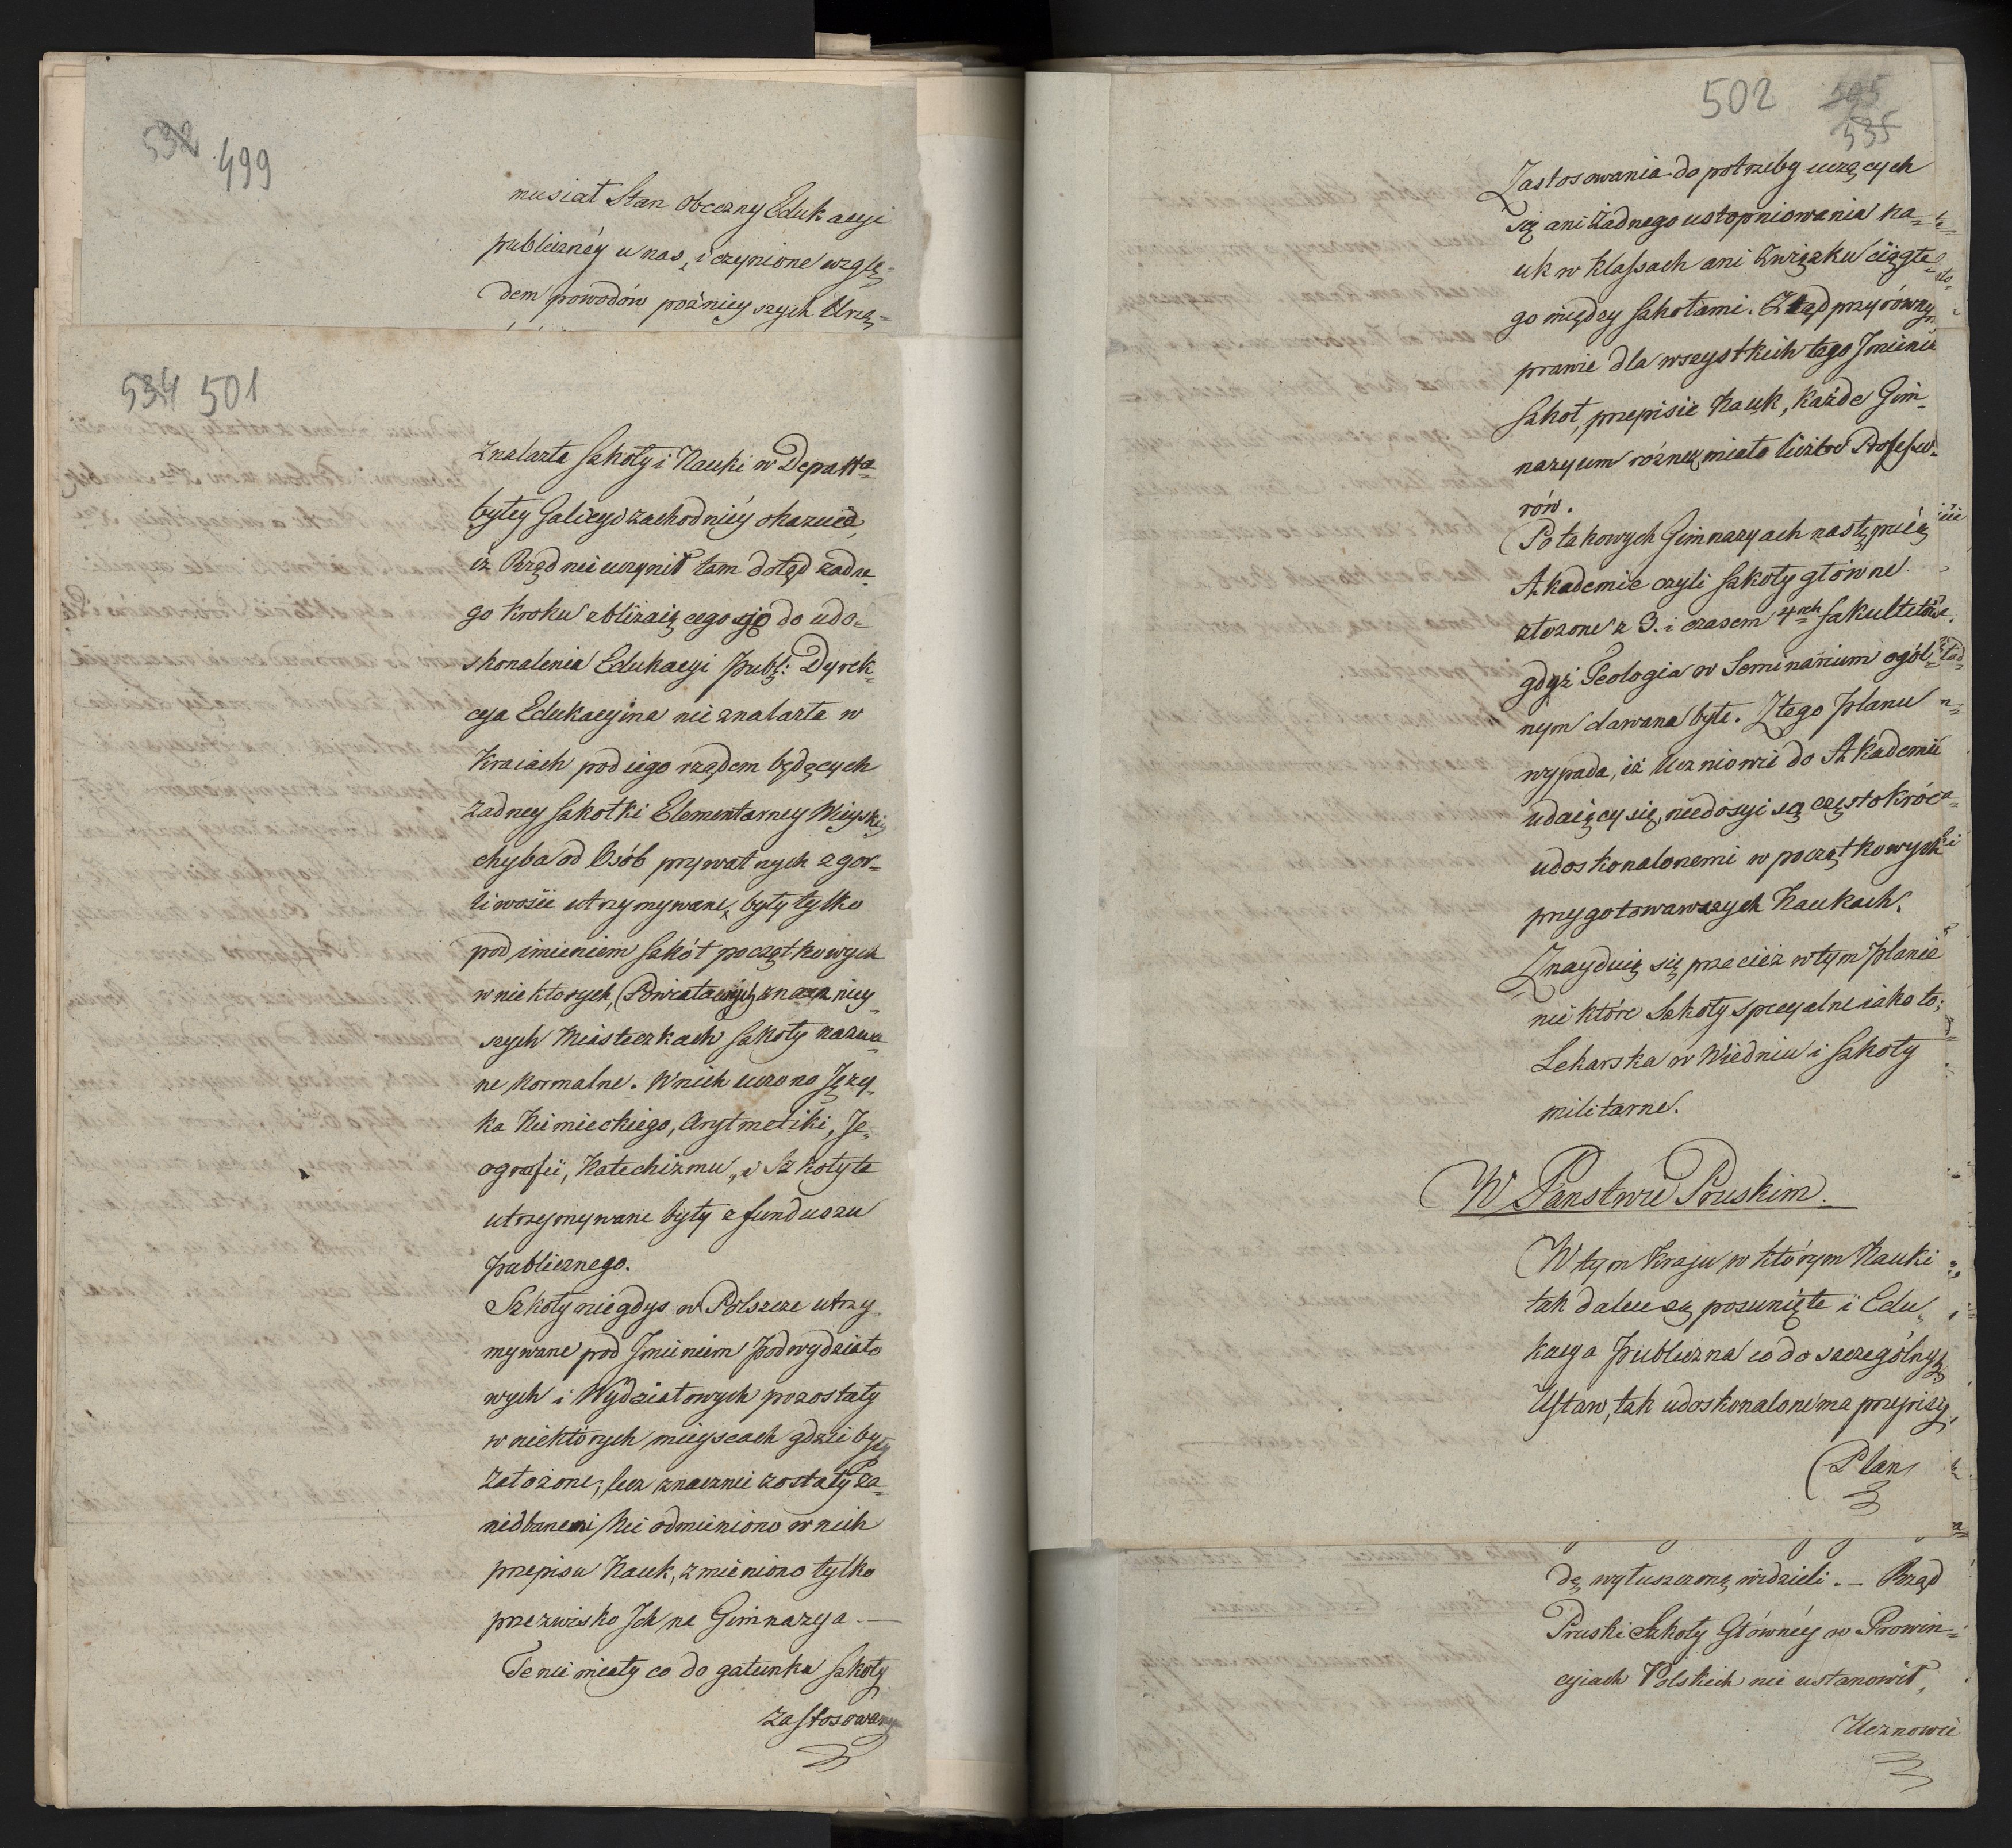 532 499
musiał Stan obczny Edukacyi
publicznéy u nas, i czynione wzglę-
dem powodów poźnieyszych Urzą-
534 501
znalazła szkoły i Nauki w Departta
byłey Galicyi zachodniéy okazuie,
iż Rząd nie uczynił tam dotąd żadne
go kroku zbliżaiącego się do udo-
skonalenia Edukacyi publ: Dyrek-
cya Edukacyina nie znalazła w
Kraiach pod iego rządem będących
żadney szkołki Elementarney Mieyski
chyba od Osób prywatnych z gor-
liwości utrzymywane, były tylko
pod imieniem szkół początkowych
w niektorych, Powiatowych znaczniey-
szych Miasteczkach szkoły nazwa-
ne Normalne. W nich uczono Języ-
ka Niemieckiego, Arytmetiki, Je-
ografii, Katechizmu, i Szkoły te
utrzymywane były z funduszu
publicznego.
Szkoły niegdys w Polszcze utrzy-
mywane pod Imieniem podwydziało
wych i Wydziałowych pozostały
w niektórych mieyscach gdzie były
założone; lecz znacznie zostały za-
niedbanemi Nie odmieniono w nich
przepisu Nauk, zmieniono tylko
przezwisko Ich na Gimnazya. —
Te nie miały co do gatunku szkoły
zastosowany
502 505
535
Zastosowania do potrzeby uczących
się ani żadnego ustopniowania na-
uk w klassach ani Związku ciągłe
go między szkołami. Ztąd przy równym
prawie dla wszystkich tego Imienia
szkoł, przepisie Nauk, każde Gim-
nazyum różnez miało liczbe Professo-
rów.
Po takowych Gimnazyach następuię
Akademie czyli szkoły główne
złożone z 3. i czasem 4rech fakultetów.
gdyż Teologia w Seminarium ogól-
nym dawana była. Z tego planu
wypada, iż Uczniowie do Akademii
udaiący się, niedosyi są częstokróć
udoskonalonemi w początkowych
przygotowawszych Naukach.
Znayduią się przecież w tym planie
niektóre Szkoły specyalne iako to:
Lekarska w Wiedniu i szkoły
militarne.
W Panstwie Pruskim.
W tym kraju w którym Nauki
tak dalece są posunięte i Edu-
kacya publiczna co do szczególnych
Ustaw, tak udoskonalone ma przepisy,
Plan
dę wyłuszczoną widzieli. — Rząd
Pruski Szkoły Głównéy w Prowin-
cyiach Polskich nie ustanowił,
Uczniowie